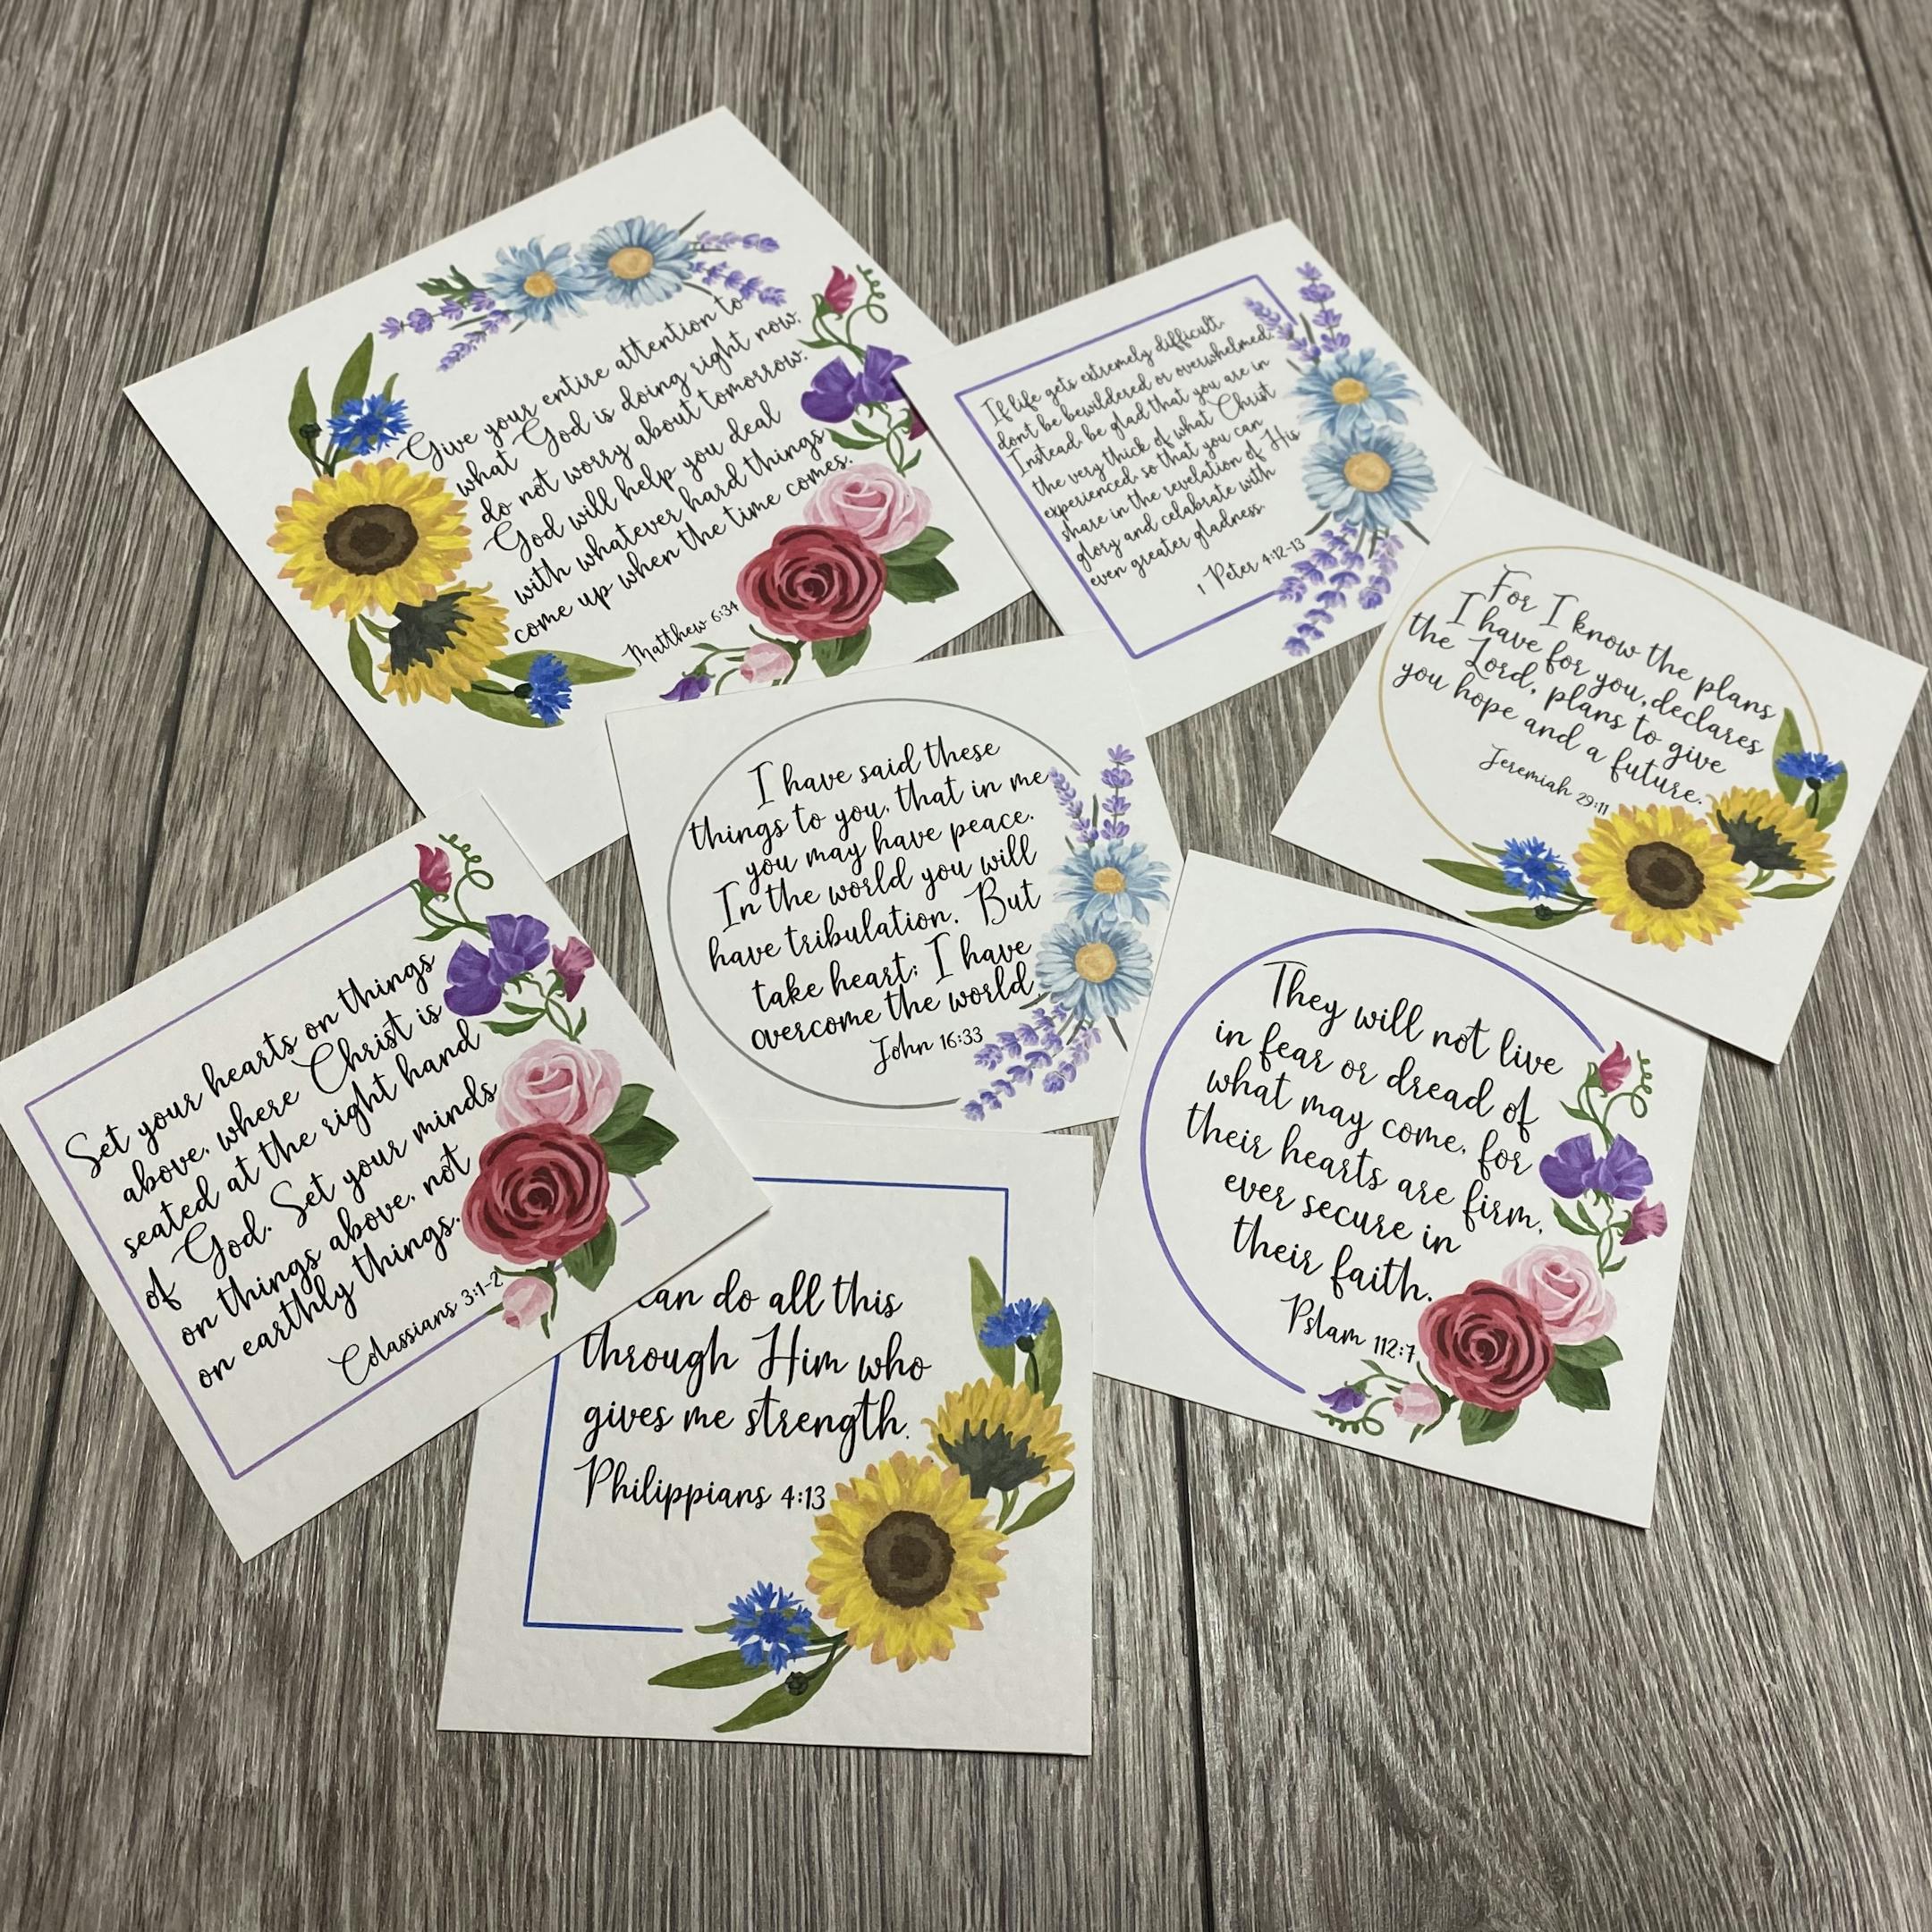 Give your entire attention to
what God is doing right now,
do not worry about tomorrow.
God will help you deal
with whatever hard things
come up when the time comes.
Matthew 6:34
If life gets extremely difficult
dont be bewildered or overwhelmed.
Instead, be glad that you are in
the very thick of what Christ
experienced, so that you can
share in the revelation of His
glory and celebrate with
even greater gladness.
1 Peter 4:12-13
For I know the plans
I have for you, declares
the Lord, plans to give
you hope and a future.
Jeremiah 29:11
I have said these
things to you, that in me
you may have peace.
In the world you will
have tribulation. But
take heart; I have
overcome the world.
John 16:33
Set your hearts on things
above, where Christ is
seated at the right hand
of God. Set your minds
on things above, not
on earthly things.
Colassians 3:1-2
They will not live
in fear or dread of
what may come, for
their hearts are firm,
ever secure in
their faith.
Pslam 112:7
can do all this
through Him who
gives me strength.
Philippians 4:13